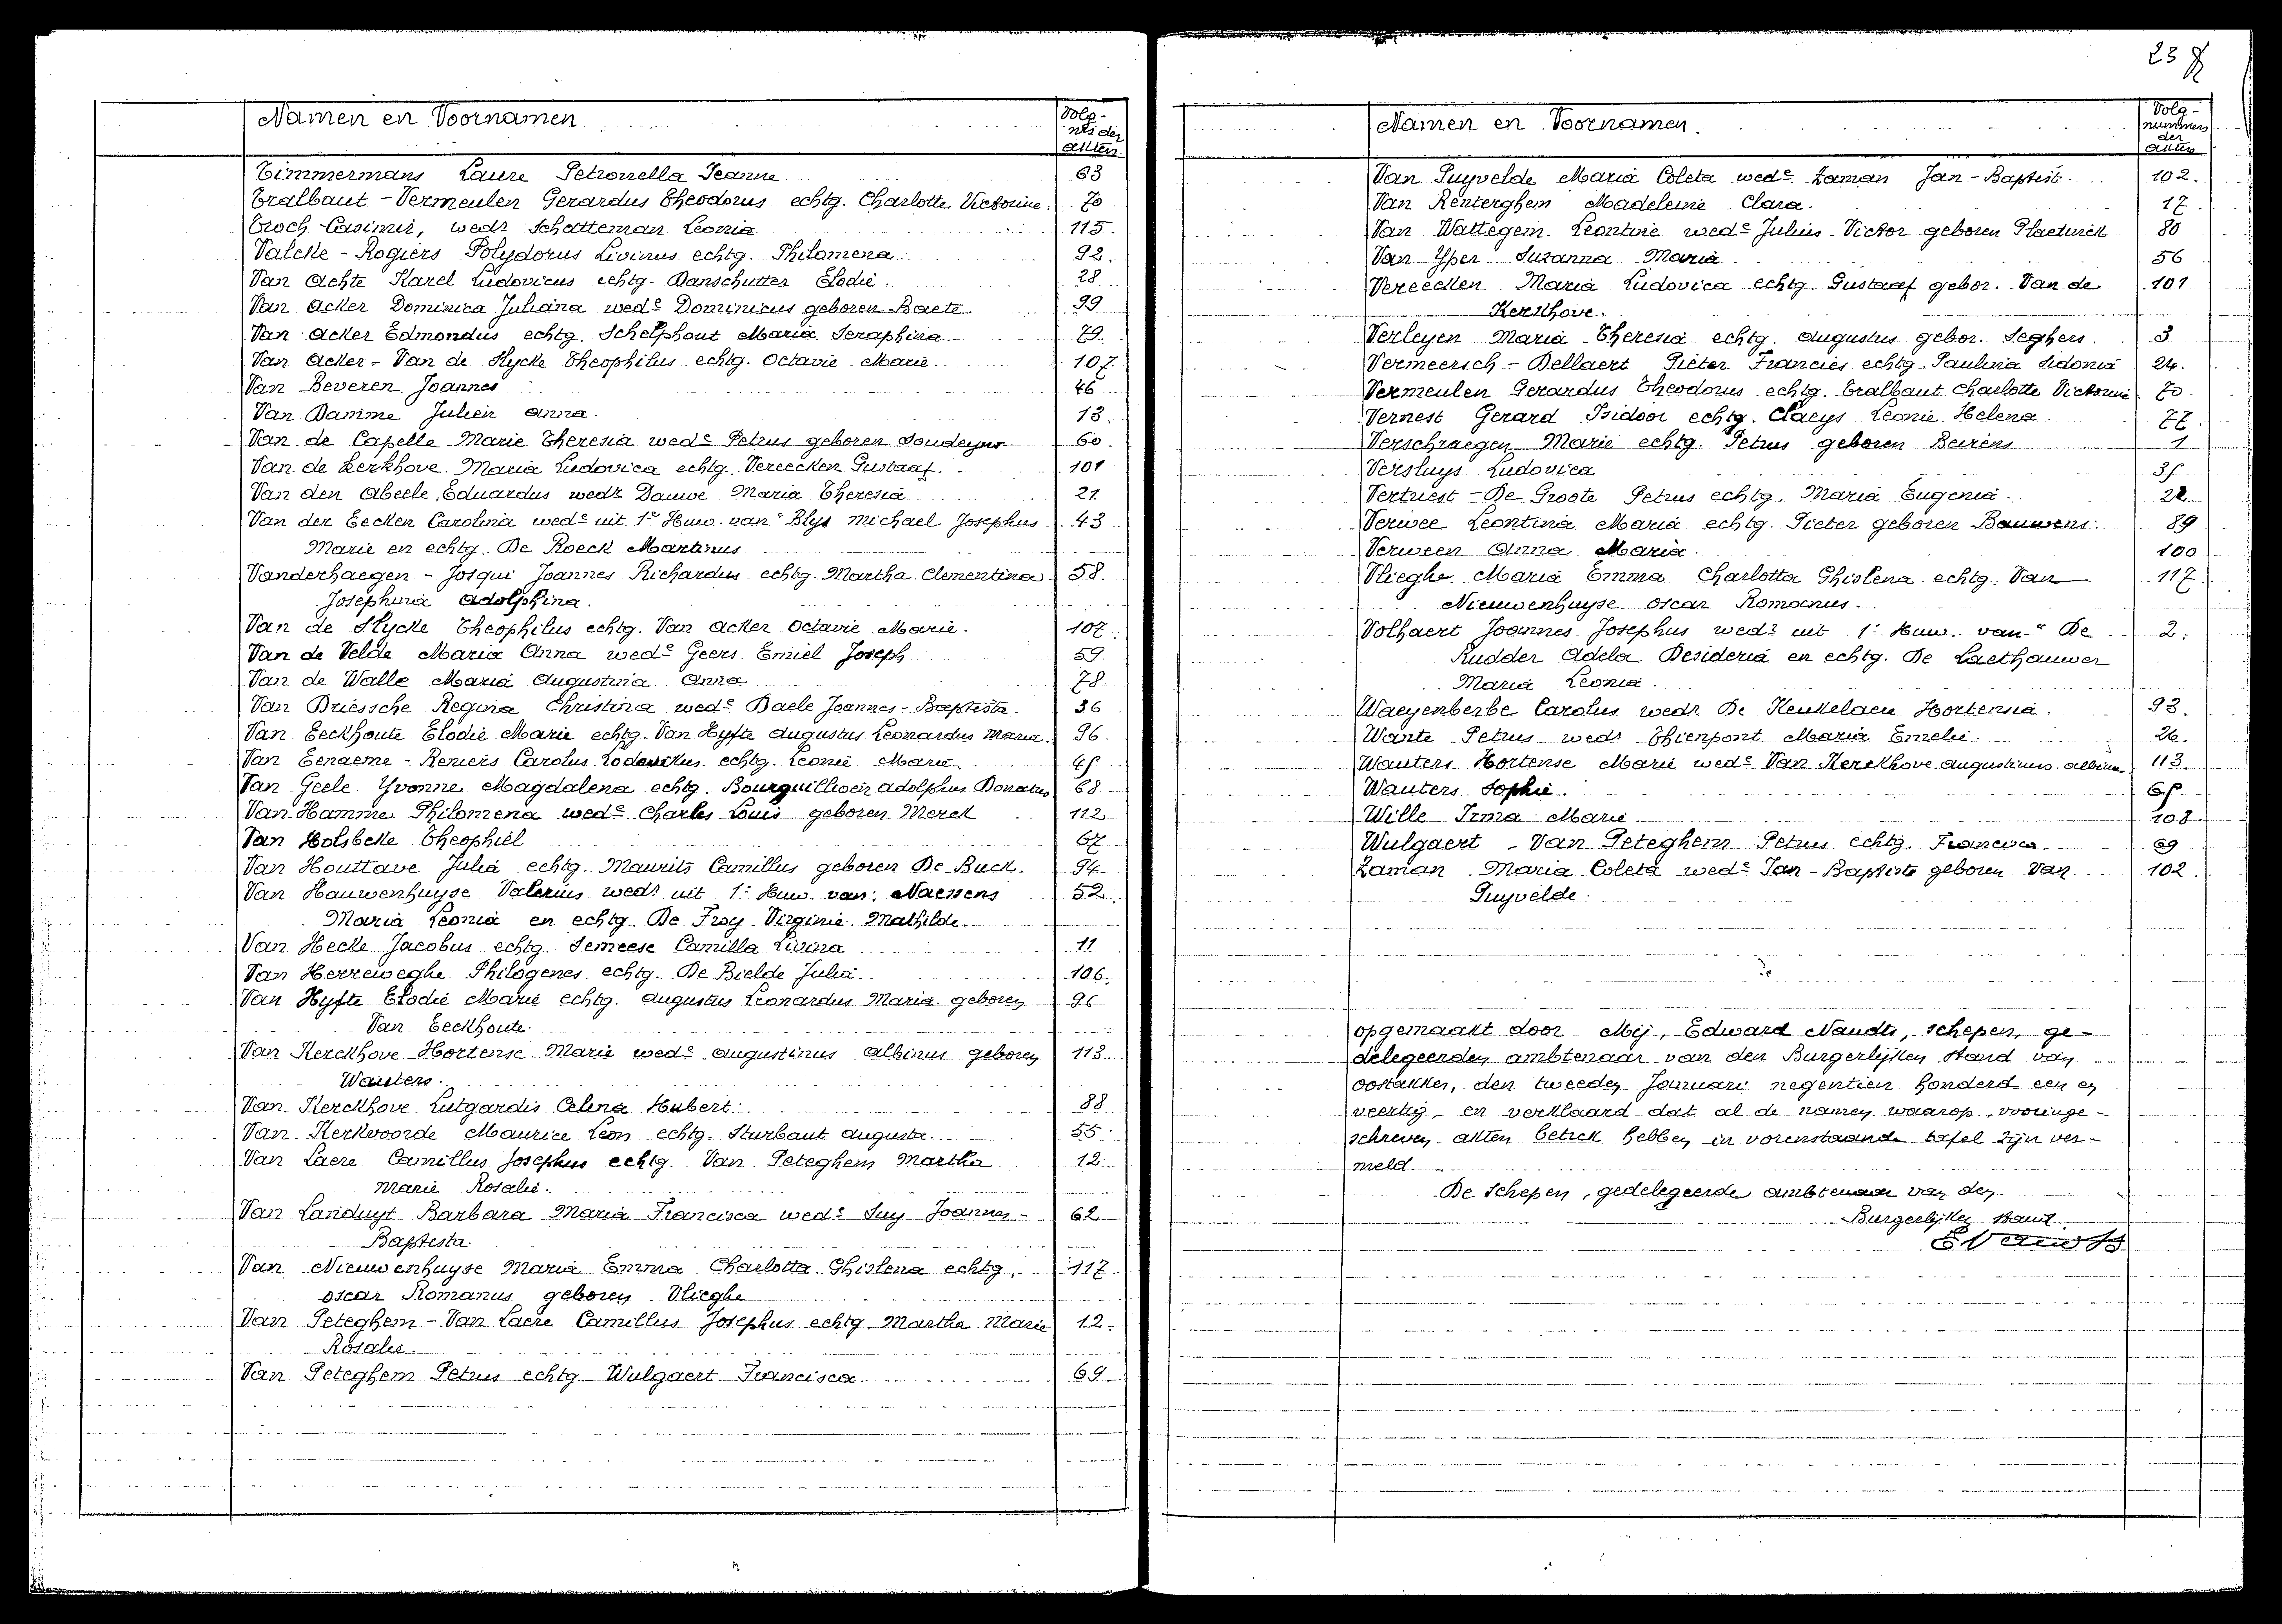 Namen en Voornamen
Volg-
nrs der
akten
Timmermans Laure Petronella Jeanne 63
Tralbaut - Vermeulen Gerardus Theodorus echtg. Charlotte Victorine 70
Troch Casimir, wedr Schatteman Leonia 115
Valcke - Rogiers Polydorus Livinus echtg. Philomena 92.
Van Achte Karel Ludovicus echtg. Danschutter Elodie. 28
Van Acker Dominica Juliana wede Dominicus geboren Baete 99
Van Acker Edmondus echtg. Schelphout Maria Seraphina. 79.
Van Acker - Van de Slycke Theophilus echtg. Octavie Marie. 107.
Van Beveren Joannes 46
Van Damme Julien Anna. 13
Van de Capelle Marie Theresia wede Petrus geboren 60
Van de Kerkhove Maria Ludovica echtg. Vereecken Gustaaf. 101
Van den Abeele Eduardus wedr Dauwe Maria Theresia 21
Van der Eecken Carolina wede uit 1e Huw. van Blys Michael Josephus 43
Marie en echtg. De Roeck Martinus
Vanderhaegen - Josqui Joannes Richardus echtg. Martha Clementina 58.
Josephina Adolphina.
Van de Slycke Theophilus echtg. Van Acker Octavie Marie. 107
Van de Velde Maria Anna wede Geers Emiel Joseph 59
Van de Walle Maria Augustina Anna 78
Van Driessche Regina Christina wede Baele Joannes-Baptista 36
Van Eeckhoute Elodie Marie echtg. Van Hyfte Augustus Leonardus Maria. 96
Van Eenaeme - Reniers Carolus Lodewikus echtg. Leonie Marie. 45
Van Geele Yvonne Magdalena echtg. Bourguillioen Adolphus Donatus 68
Van Hamme Philomena wede Charles Louis geboren Merck 112
Van Holsbeke Theophiel 67
Van Houttave Julia echtg. Maurits Camillus geboren De Buck. 94
Van Hauwenhuyse Valerius wedr uit 1e Huw. van: Naessens 52
Maria Leonia en echtg. De Froy Virginie Mathilde.
Van Hecke Jacobus echtg. Semeese Camilla Livina 11
Van Herreweghe Philogenes echtg. De Bielde Julia. 106
Van Hyfte Elodie Marie echtg. Augustus Leonardus Maria geboren 96
Van Eeckhoute.
Van Kerckhove Hortense Marie wede Augustinus Albinus geboren 113
Wauters.
Van Kerckhove Lutgardis Celina Hubert. 88
Van Kerkvoorde Maurice Leon echtg. Sturbaut Augusta. 55
Van Laere Camillus Josephus echtg. Van Peteghem Martha 12
Marie Rosalie.
Van Landuyt Barbara Maria Francisca wede Suy Joannes- 62
Baptista.
Van Nieuwenhuyse Maria Emma Charlotta Ghislena echtg. 117
Oscar Romanus geboren Vlieghe
Van Peteghem - Van Laere Camillus Josephus echtg Martha Marie 12.
Rosalie.
Van Peteghem Petrus echtg. Wulgaert Francisca. 69
23
Namen en Voornamen
Volg-
nummers
der
akten
Van Puyvelde Maria Coleta wede Zaman Jan-Baptist. 102.
Van Renterghem Madeleine Clara. 17
Van Wattegem Leontine wede Julius Victor geboren Plaetinck 80
Van Yper Suzanna Maria 56
Vereecken Maria Ludovica echtg. Gustaaf gebor. Van de 101
Kerkhove.
Verleyen Maria Theresia echtg. Augustus gebor. Seghers. 3
Vermeersch - Dellaert Pieter Francies echtg. Paulina Sidonia 24.
Vermeulen Gerardus Theodorus echtg. Tralbaut Charlotte Victorine 70
Vernest Gerard Isidoor echtg. Claeys Leonie Helena 77.
Verschraegen Marie echtg. Petrus geboren Beirens 1
Versluys Ludovica 35
Vertriest - De Groote Petrus echtg. Maria Eugenia. 22.
Verwee Leontina Maria echtg. Pieter geboren Bauwens. 89
Verween Anna Maria. 100
Vlieghe Maria Emma Charlotta Ghislena echtg. Van 117
Nieuwenhuyse Oscar Romanus.
Volhaert Joannes Josephus wedr uit 1e Huw. van De 2.
Rudder Adela Desideria en echtg. De Laethauwer
Maria Leonia.
Waeyenberbe Carolus wedr De Keukelaere Hortensia. 93.
Wante Petrus wedr Thienpont Maria Emelie. 26.
Wauters Hortense Marie wede Van Kerckhove Augustinus Albinus. 113.
Wauters Sophie. 65
Wille Irma Marie 108
Wulgaert - Van Peteghem Petrus echtg. Francisca. 69
Zaman Maria Coleta wede Jan-Baptiste geboren Van 102
Puyvelde.
Opgemaakt door Mij, Edward Naudts, schepen, ge-
delegeerden ambtenaar van den Burgerlijken stand van
Oostakker, den tweeden Januari negentien honderd een en
veertig en verklaard dat al de namen waarop vooringe-
schreven akten betrek hebben in vorenstaande tafel zijn ver-
meld.
De Schepen, gedelegeerde ambtenaar van den
Burgerlijken stand